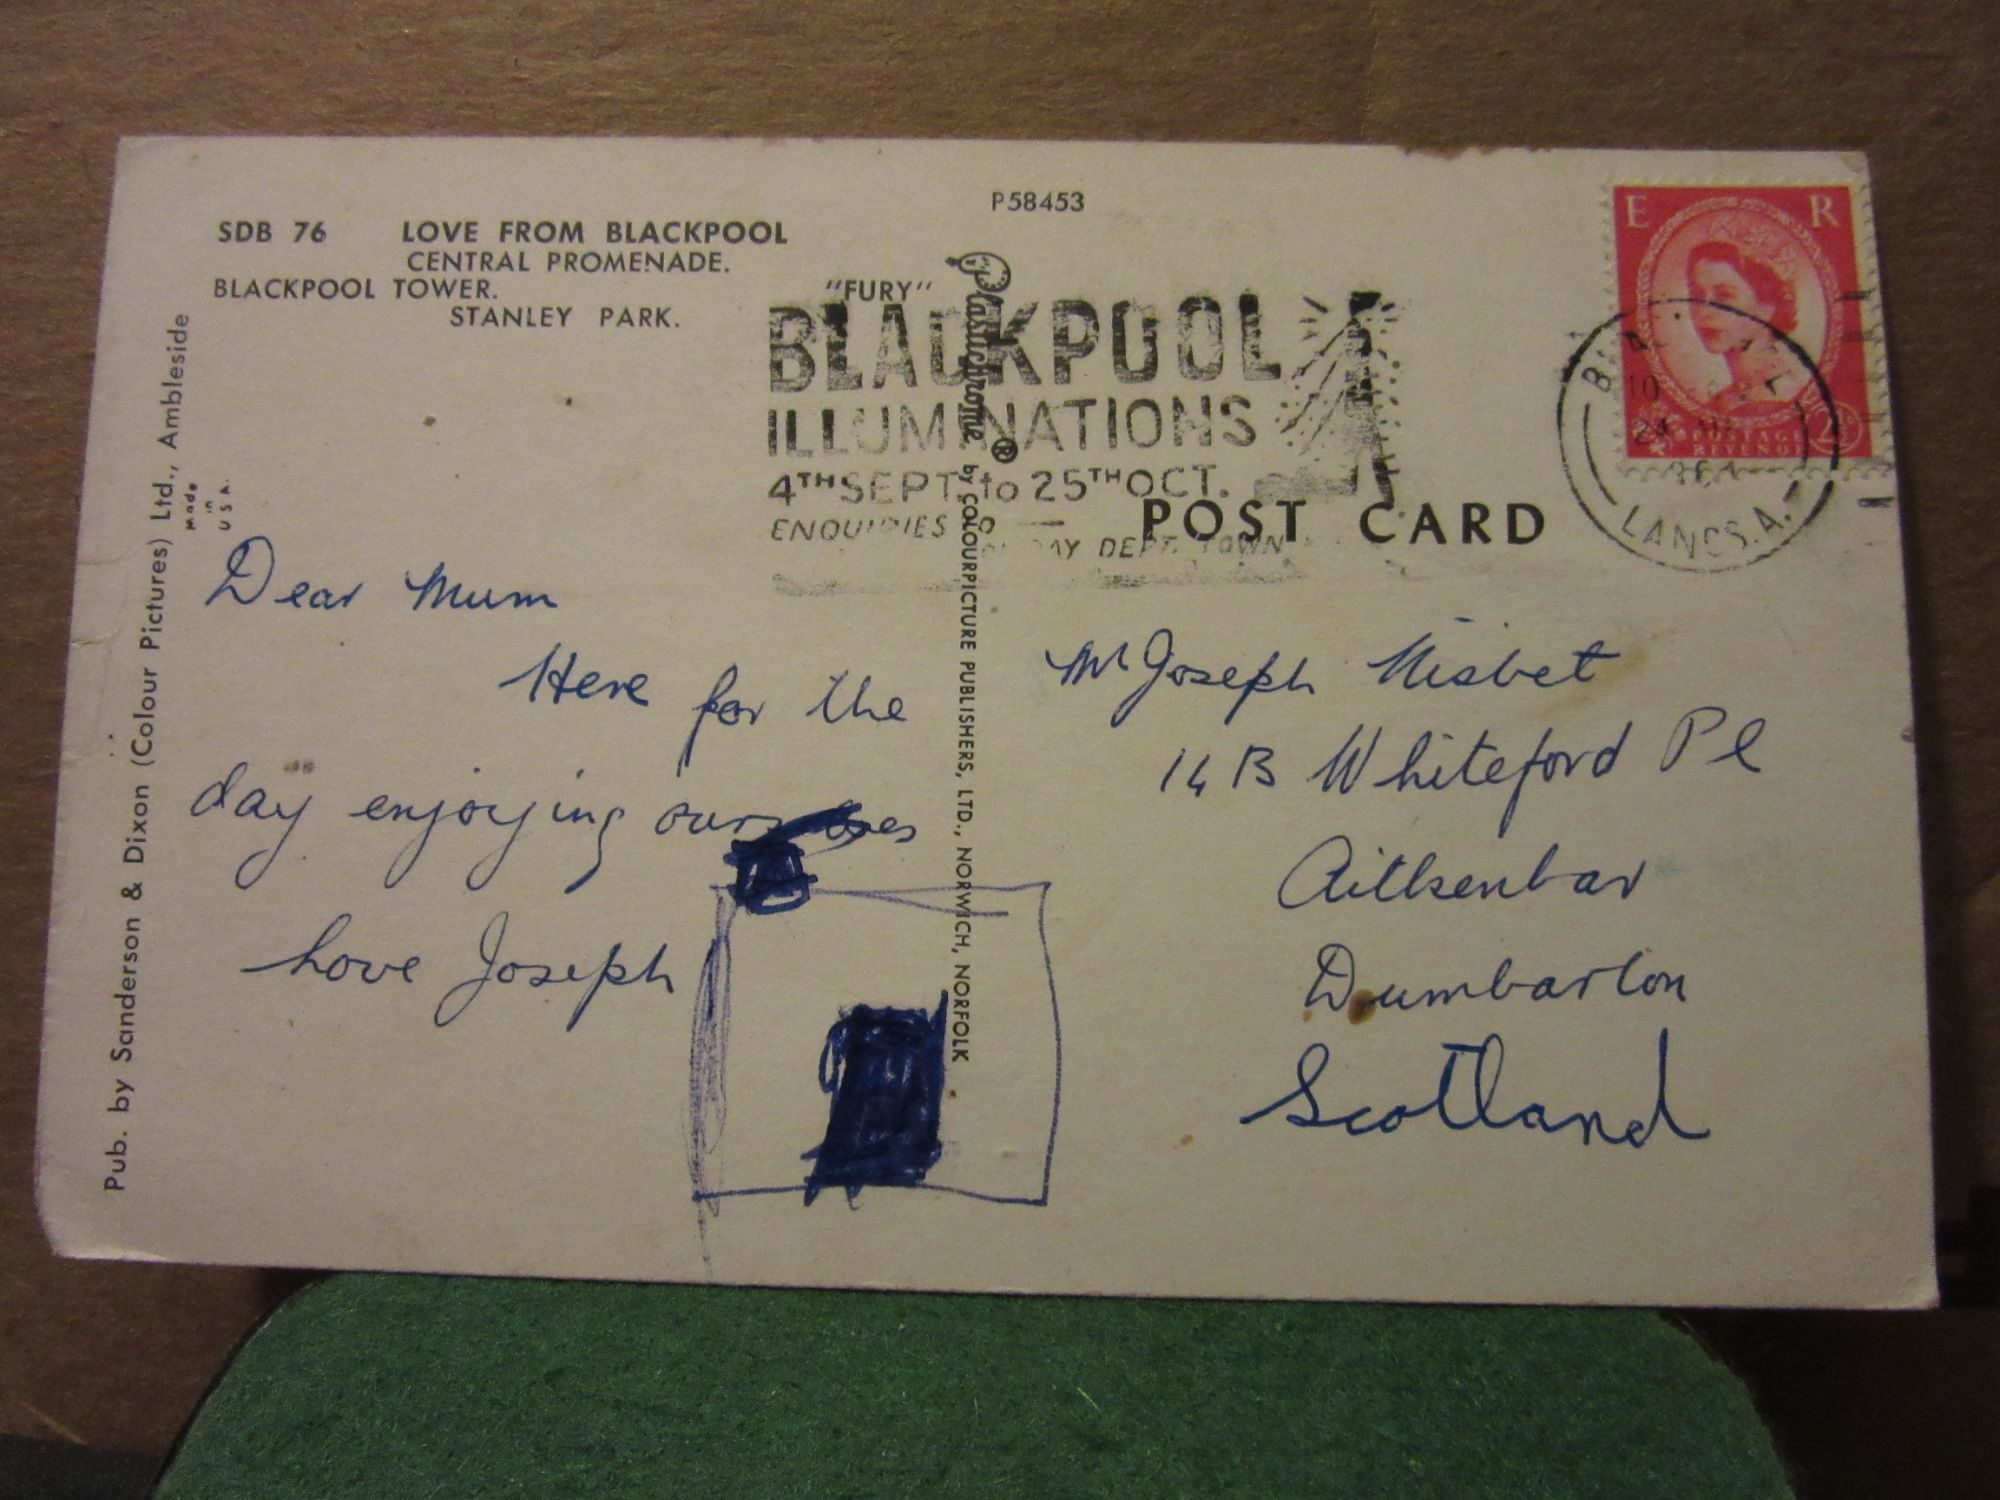 P58453
SDB 76 LOVE FROM BLACKPOOL
CENTRAL PROMENADE.
BLACKPOOL TOWER. "FURY"
STANLEY PARK.
Pub. by Sanderson & Dixon (Colour Pictures) Ltd., Ambleside
Made
in
U S A.
Plastichrome ® by COLOURPICTURE PUBLISHERS, LTD., NORWICH, NORFOLK
BLACKPOOL
ILLUMINATIONS
4TH SEPT. to 25TH OCT.
ENQUIRIES DEPT. TOWN
POST CARD
E R
POSTAGE
REVENUE
LANCS. A.
Dear Mum
Here for the
day enjoying
Love Joseph
Mr Joseph Nisbet
14 B Whiteford Pl
Aitkenbar
Dumbarton
Scotland